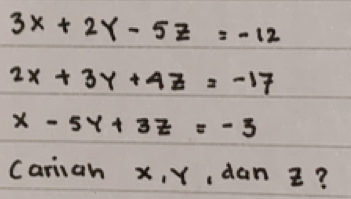 3x + 2Y - 5Z = -12
2x + 3Y + 4Z = -17
x - 5Y + 3Z = -3
Carilah x, Y, dan Z?